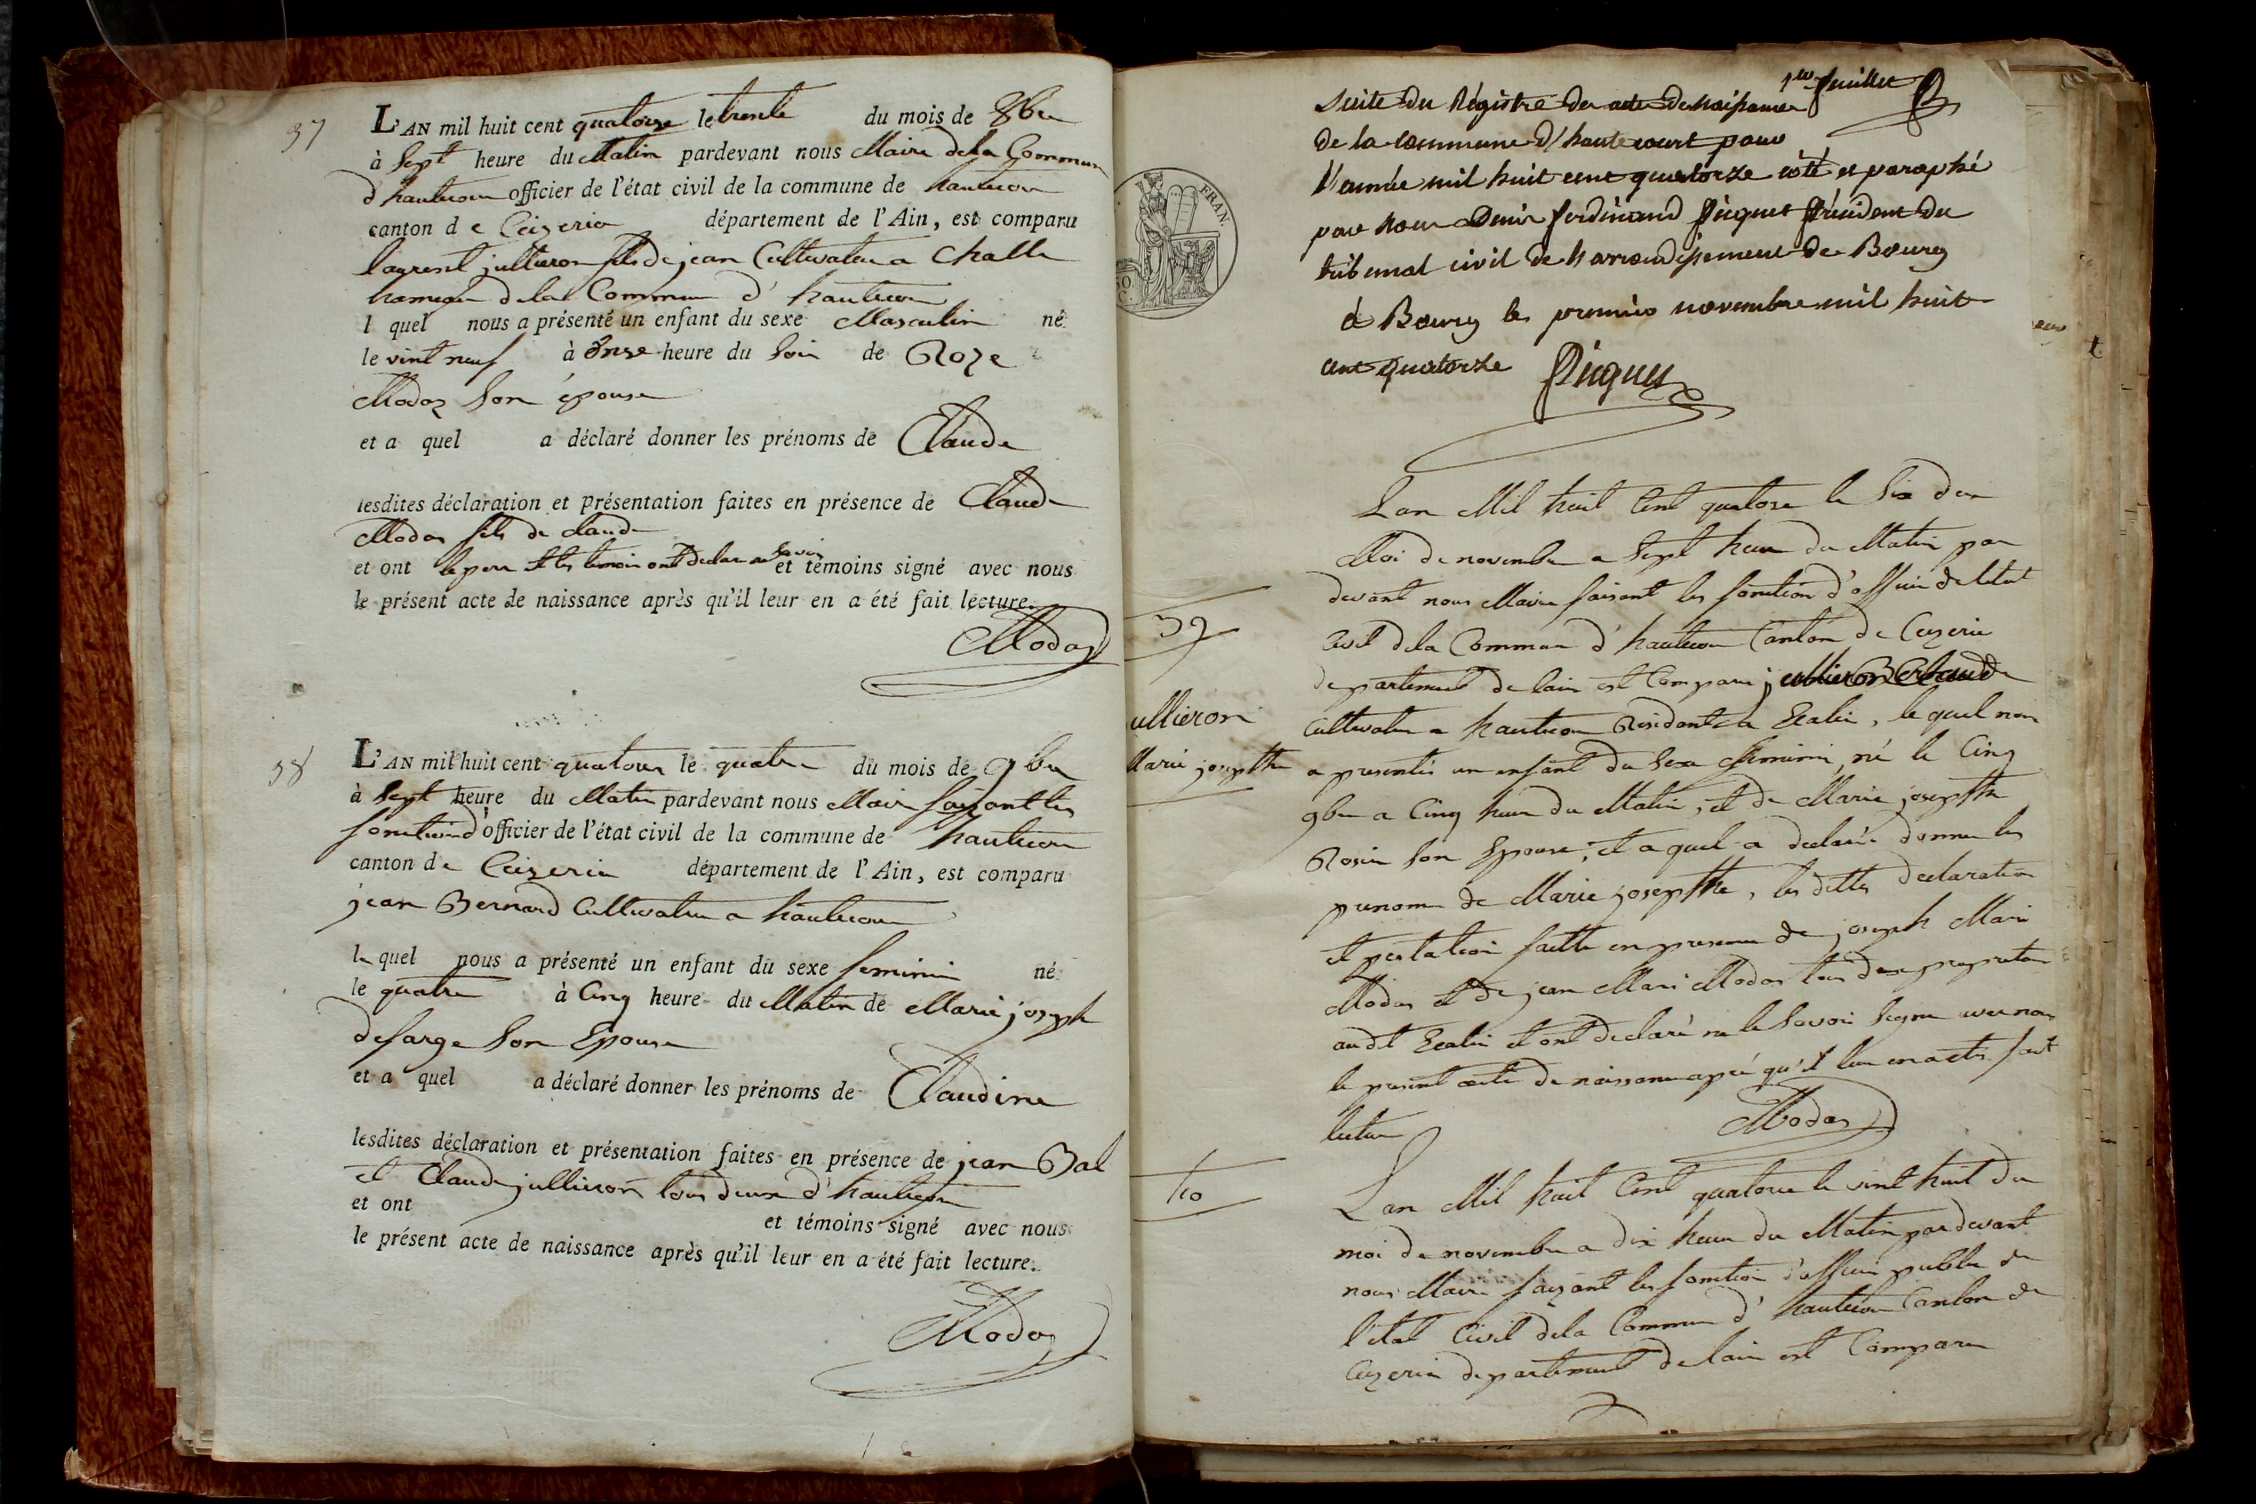 37
L'AN mil huit cent quatorze le trente du mois de 8bre
à Sept heure du Matin pardevant nous Maire dela Commune
d'hautecour officier de l'état civil de la commune de hautecour
canton de Ceizeria département de l'Ain, est comparu
laurent jullieron fils de jean Cultivateur a Challe
hameau dela Commune d'hautecour
l quel nous a présenté un enfant du sexe Masculin né
le vint neuf à onze heure du Soir de Roze
Modaz Son épouse
et a quel a déclaré donner les prénoms de Claude
lesdites déclaration et présentation faites en présence de Claude
Modas fils de claude
et ont le pere et les temoin ont declare ne Savoir et témoins signé avec nous
le présent acte de naissance après qu'il leur en a été fait lecture.
Modas
38
L'AN mil huit cent quatorze le quatre du mois de 9bre
à Sept heure du Matin pardevant nous Maire faisant les
fonction d'officier de l'état civil de la commune de hautecour
canton de Ceizeria département de l'Ain, est comparu
jean Bernard Cultivateur a hautecour
le quel nous a présenté un enfant du sexe feminin né
le quatre à Cinq heure du Matin de Marie joseph
defarge Son Epouse
et a quel a déclaré donner les prénoms de Claudine
lesdites déclaration et présentation faites en présence de jean Bal
et Claude jullieron tous deux d'hautecour
et ont et témoins signé avec nous
le présent acte de naissance après qu'il leur en a été fait lecture.
Modas
1er feuillet
Suite du Régistre des actes de naissances
de la commune d'hautecourt pour
l'année mil huit cent quatorze côté et paraphé
par nous Denis ferdinand Picquet Président du
tribunal civil de l'arrondissement de Bourg
à Bourg le premier novembre mil huit
cent quatorze Picquet
FRAN.
50
C.
39
ullieron
Marie josepthe
Lan Mil huit Cent quatorze le Six du
Moi de novembre a Sept heure du Matin par
devant nous Maire faisant les fonction d'officier de letat
Civil dela Commune d'hautecour Canton de Ceyzeria
departement de lain est Comparu jullieron Claude
Cultivateur a hautecour Residant a , le quel nous
a presentés un enfant du Sexe feminin, né le Cinq
9bre a Cinq heure du Matin, et de Marie josepthe
Rosin Son Epouse, et a quel a declaré donner les
prenom de Marie josepthe, les dittes declaration
et faitte en presence de joseph Marie
Modas et de jean Marie Modas tous deux propriétaire
audit et ont declaré ne le Savoir Signe avec nous
le present acte de naissance aprè qu'il leur en a etés fait
lecture
Modas
40
Lan Mil huit Cent quatorze le vint huit du
moi de novembre a dix heure du Matin par devant
nous Maire faisant les fonction d'officier public de
l'etat Civil dela Commune d'hautecour Canton de
Ceyzeria departement de lain est Comparu